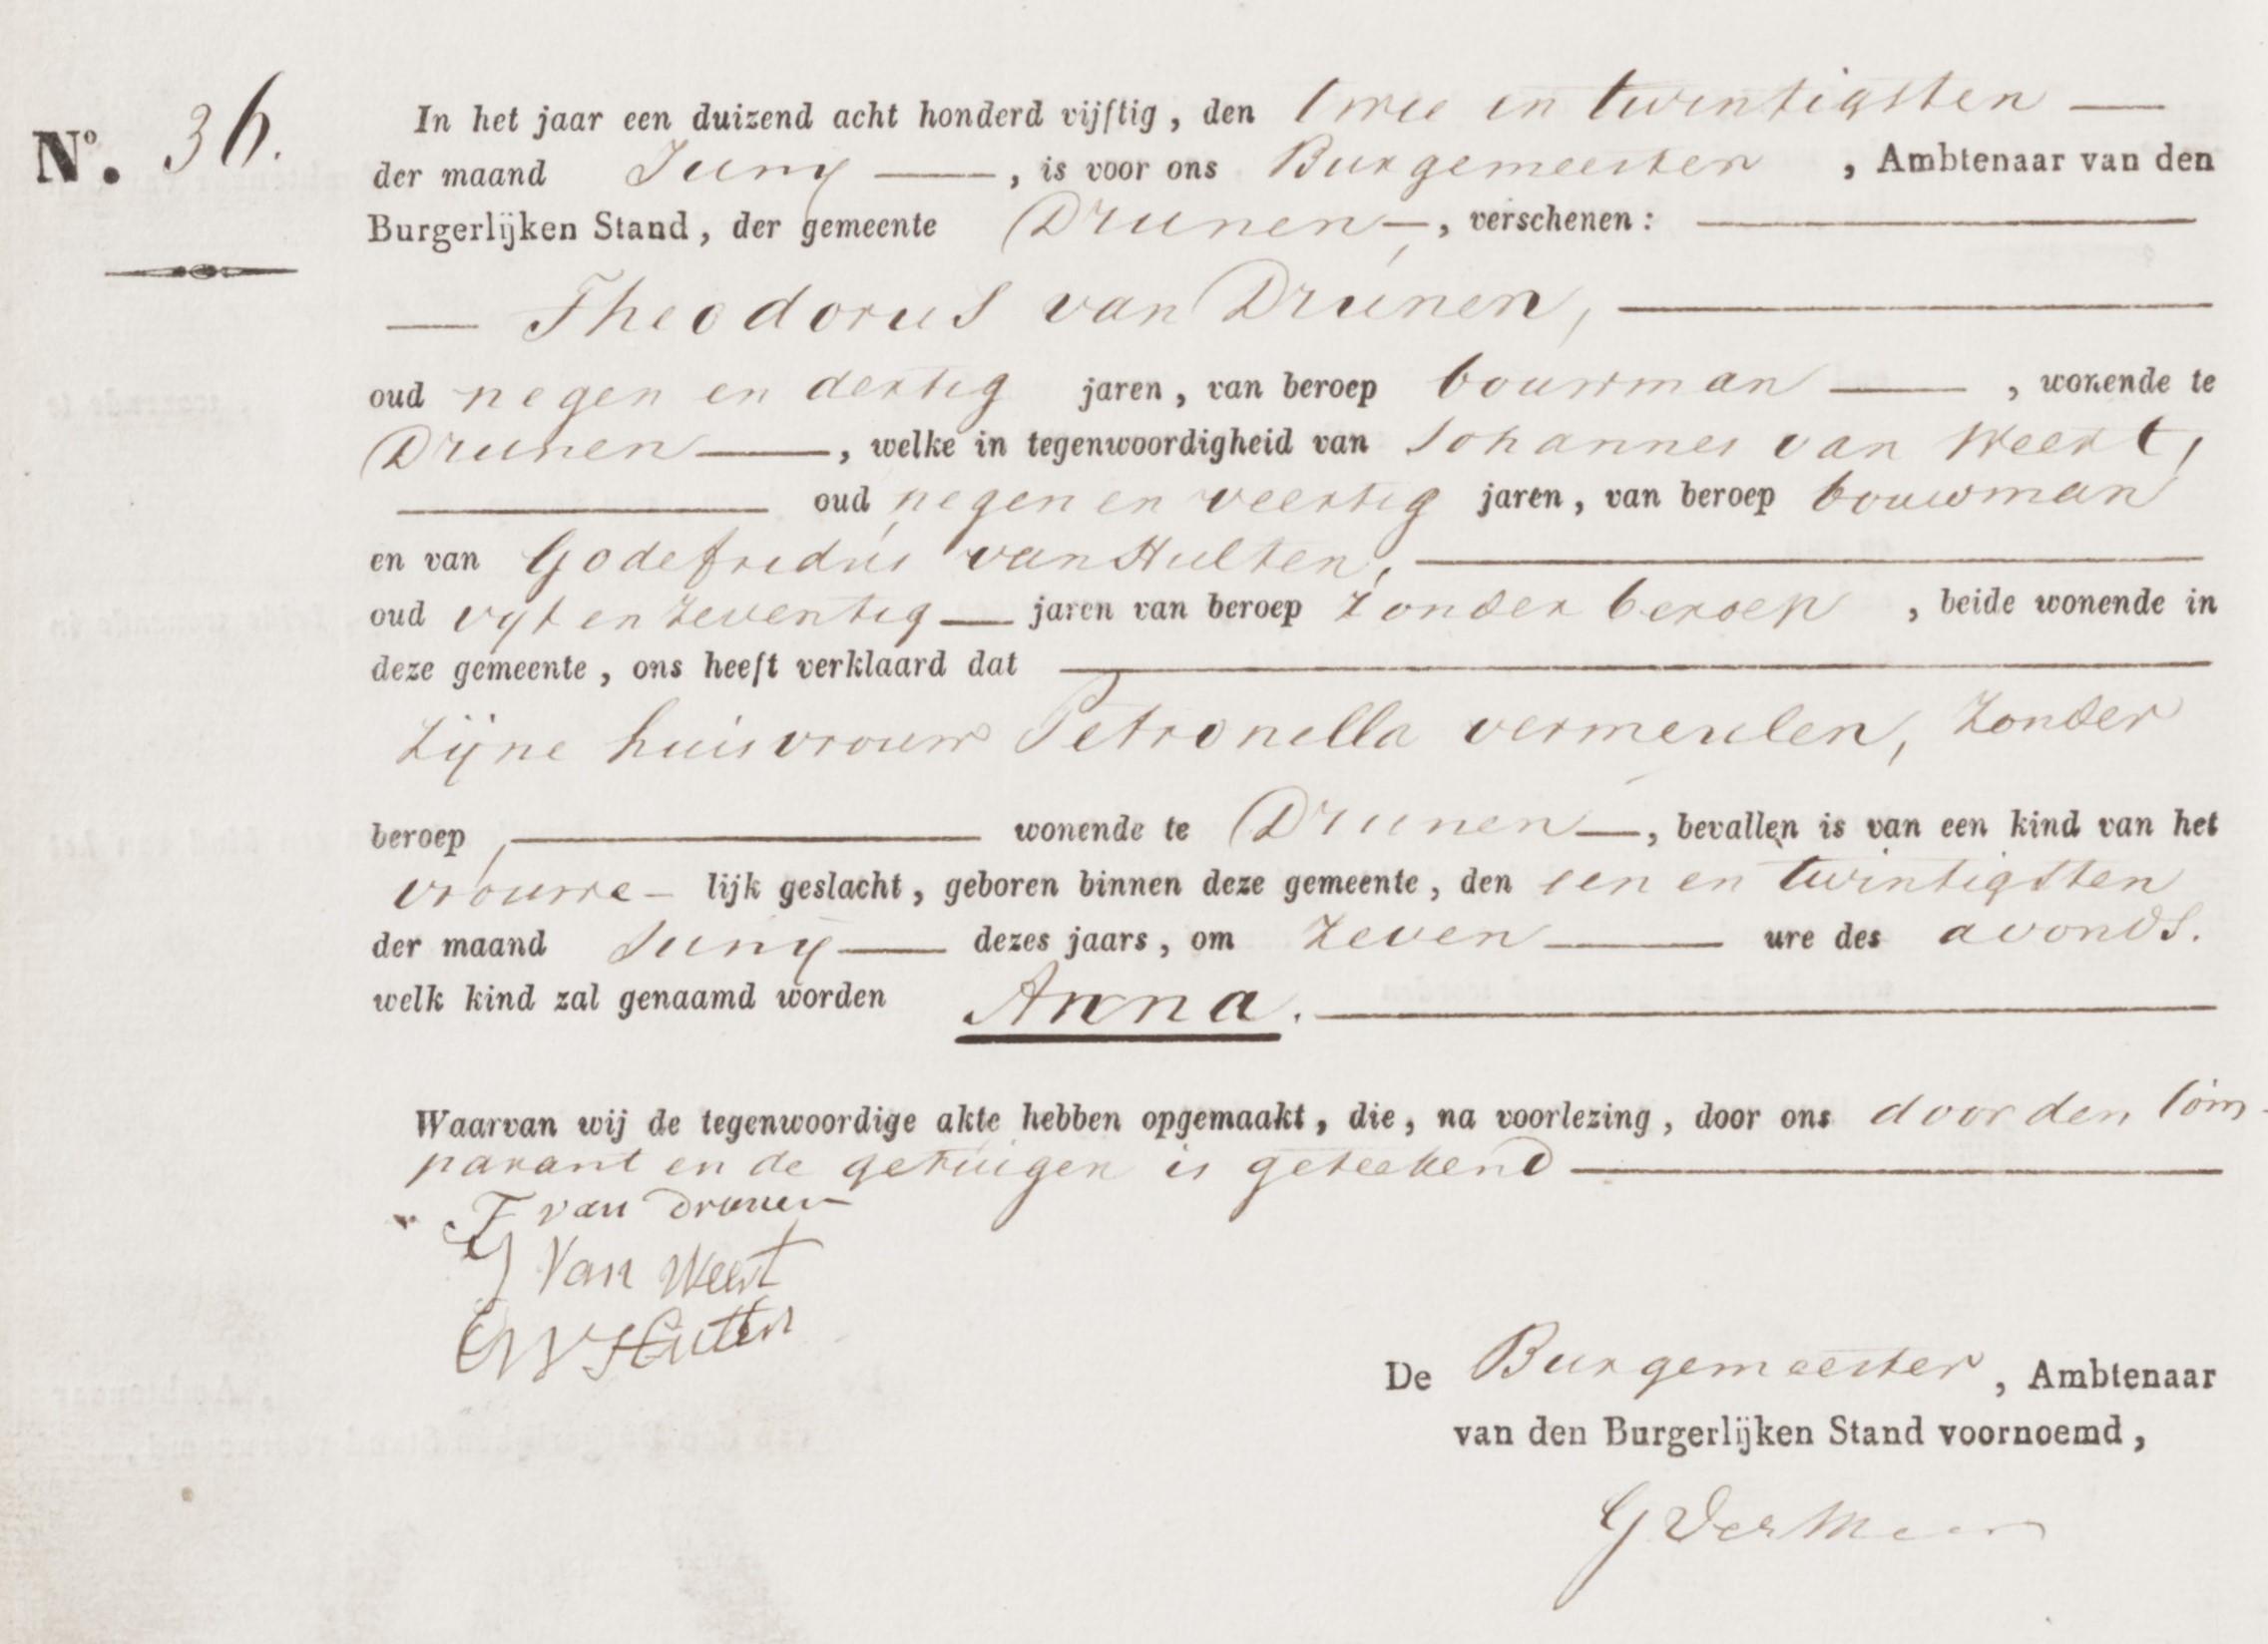 No. 36.
In het jaar een duizend acht honderd vijftig, den twee en twintigsten —
der maand Juny —, is voor ons Burgemeester, Ambtenaar van den
Burgerlijken Stand, der gemeente Drunen —, verschenen: —
— Theodorus van Drunen, —
oud negen en dertig jaren, van beroep bouwman —, wonende te
Drunen —, welke in tegenwoordigheid van Johannes van Weert,
— oud negen en veertig jaren, van beroep bouwman
en van Godefridus van Hulten, —
oud vyf en zeventig — jaren van beroep zonder beroep, beide wonende in
deze gemeente, ons heeft verklaard dat —
zijne huisvrouw Petronella vermeulen, zonder
beroep, — wonende te Drunen —, bevallen is van een kind van het
vrouwe- lijk geslacht, geboren binnen deze gemeente, den een en twintigsten
der maand Juny — dezes jaars, om zeven — ure des avonds.
welk kind zal genaamd worden Anna. —
Waarvan wij de tegenwoordige akte hebben opgemaakt, die, na voorlezing, door ons door den Com-
parant en de getuigen is geteekend —
T van Drunen
J Van Weert
G V Hulten
De Burgemeester, Ambtenaar
van den Burgerlijken Stand voornoemd,